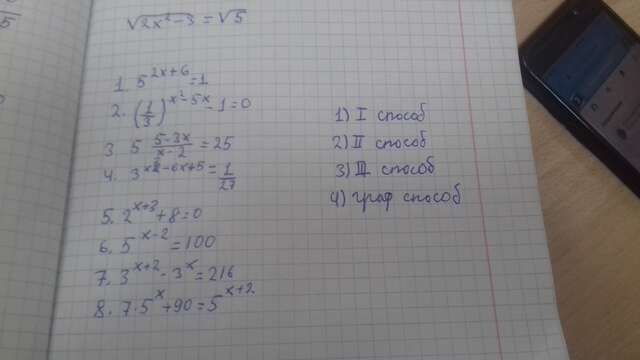 √2x²-3 = √5
1. 5^(2x+6) = 1
2. (1/3)^(x²-5x) - 1 = 0
3 5^((5-3x)/(x-2)) = 25
4. 3^(x²-6x+5) = 1/27
5. 2^(x+3) + 8 = 0
6. 5^(x-2) = 100
7. 3^(x+2) - 3^x = 216
8. 7·5^x + 90 = 5^(x+2)
1) I способ
2) II способ
3) III способ
4) граф способ